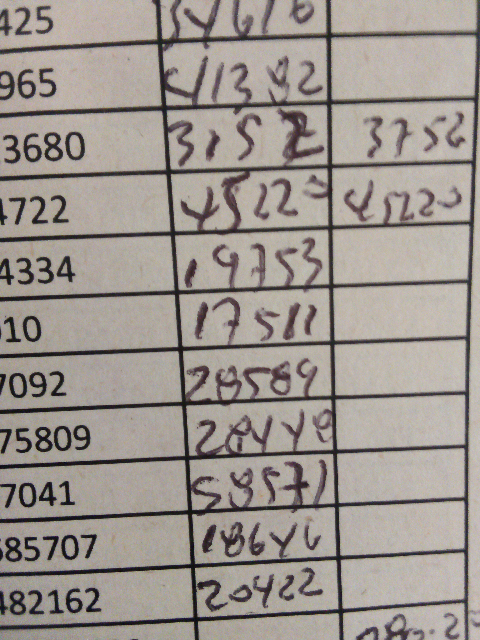 425 34616
965 41392
3680 3152 3752
4722 45220 45220
4334 19753
010 17511
7092 28589
75809 28448
7041 58571
685707 18646
482162 20422